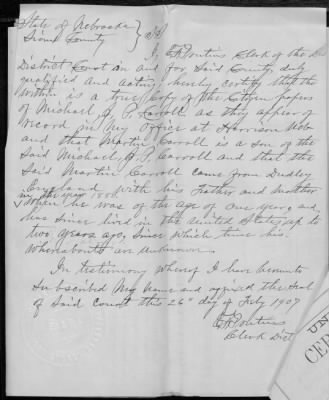 State of Nebraska } SS
Sioux County
I C. F. Pontius Clerk of the
District Court in and for Said County, duly
qualified and acting, hereby certify that the
within is a true copy of the Citizen papers
of Michael J. P. Carroll as they appear of
record in my office at Harrison Neb
and that Martin Carroll is a son of the
Said Michael J. P. Carroll and that the
Said Martin Carroll came from Dudley
England with his Father and Mother
in the year
when he was of the age of one year, and
has since lived in the United States, up to
two years ago, since which time his
whereabouts are unknown.
In testimony whereof I have hereunto
subscribed my name and affixed the seal
of Said court this 26th day of Feby 1907
Pontius
Clerk Dist
UN
CER